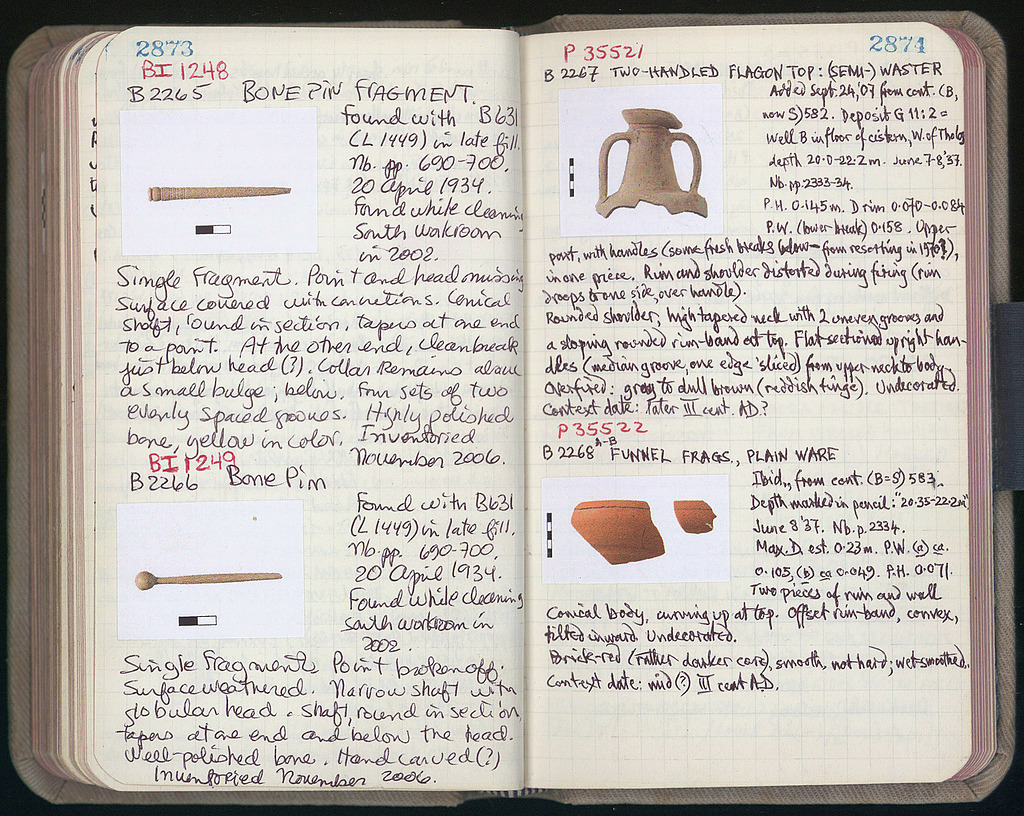 2873
BI 1248
B 2265 BONE PIN FRAGMENT.
found with B631
(L 1449) in late fill.
Nb. pp. 690-700.
20 April 1934.
Found while cleaning
South workroom
in 2002.
Single fragment. Point and head missing
Surface covered with concretions. Conical
shaft, round in section, tapers at one end
to a point. At the other end, clean break
just below head (?). Collar remains above
a small bulge; below, four sets of two
evenly spaced grooves. Highly polished
bone, yellow in color. Inventoried
November 2006.
BI 1249
B 2266 Bone Pin
Found with B631
(L 1449) in late fill.
Nb. pp. 690-700.
20 April 1934.
Found while cleaning
south workroom in
2002.
Single fragment. Point broken off.
Surface weathered. Narrow shaft with
globular head. Shaft, round in section,
tapers at one end and below the head.
Well-polished bone. Hand carved (?)
Inventoried November 2006.
2874
P 35521
B 2267 TWO-HANDLED FLAGON TOP: (SEMI-) WASTER
Added Sept. 24, '07 from cont. (B,
now S) 582. Deposit G 11:2 =
Well B in floor of cistern, W. of Tholos
depth 20.0-22.2 m. June 7-8, '37.
Nb. pp. 2333-34.
P.H. 0.145m. D rim 0.070-0.084
P.W. (lower break) 0.158. Upper
part, with handles (some fresh breaks below - from resorting in
in one piece. Rim and shoulder distorted during firing (rim
droops to one side, over handle).
Rounded shoulder, high tapered neck with 2 uneven grooves and
a sloping rounded rim-band at top. Flat-sectioned upright han-
dles (median groove, one edge 'sliced) from upper neck to body.
Overfired: gray to dull brown (reddish tinge). Undecorated.
Context date: later III cent. A.D.?
P 35522
B 2268 A-B FUNNEL FRAGS., PLAIN WARE
Ibid., from cont. (B=S) 583.
Depth marked in pencil: "20.35-22.2m"
June 8 '37. Nb. p. 2334.
Max. D. est. 0.23m. P.W. (a) ca.
0.105, (b) ca 0.049. P.H. 0.071.
Two pieces of rim and wall
Conical body, curving up at top. Offset rim-band, convex,
tilted inward. Undecorated.
Brick-red (rather darker core), smooth, not hard; wet-smoothed.
Context date: mid (?) III cent A.D.